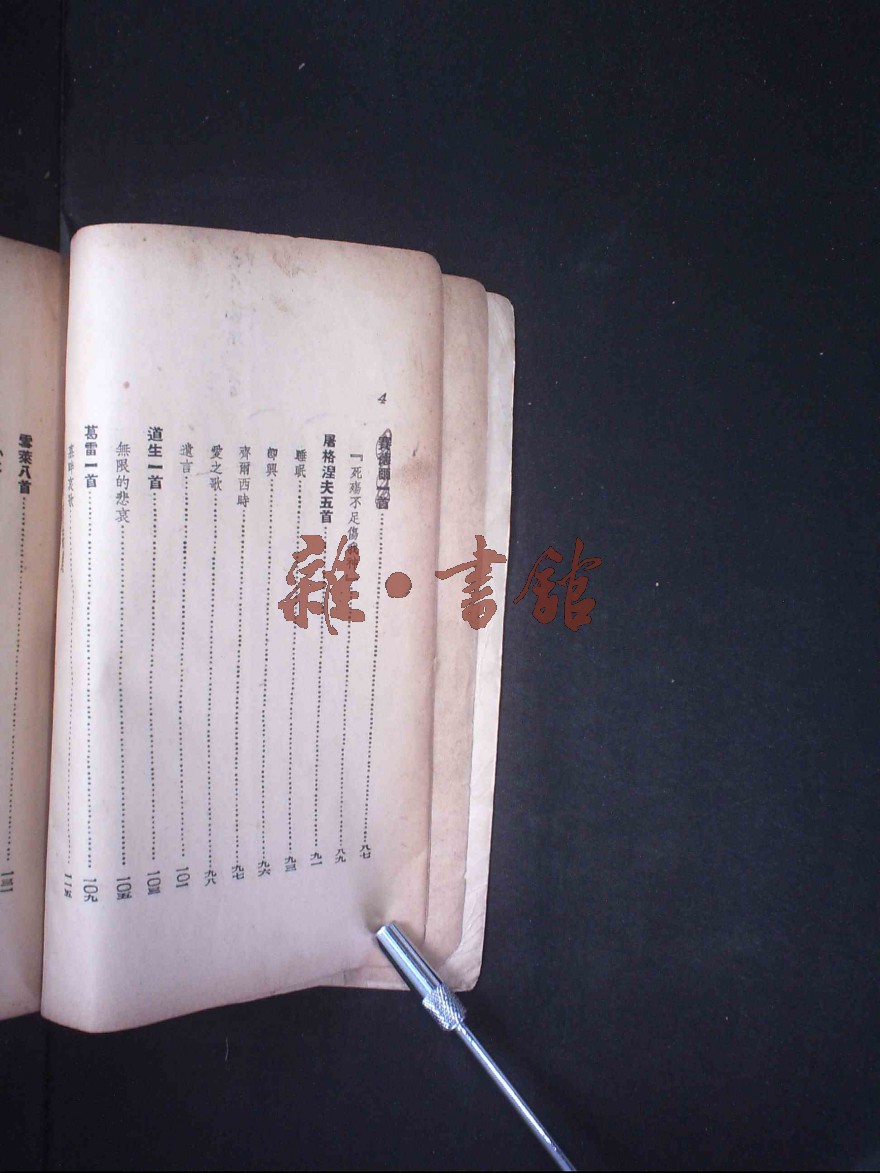 4
賽德爾一首………八七
『死殤不足傷我神………八九
屠格涅夫五首………九一
睡眠………九三
卽興………九六
齊爾西時………九七
愛之歌………九八
遺言………一〇一
道生一首………一〇三
無限的悲哀………一〇五
葛雷一首………一〇九
墓畔哀歌………一一五
雪萊八首………一三一
雜·書館